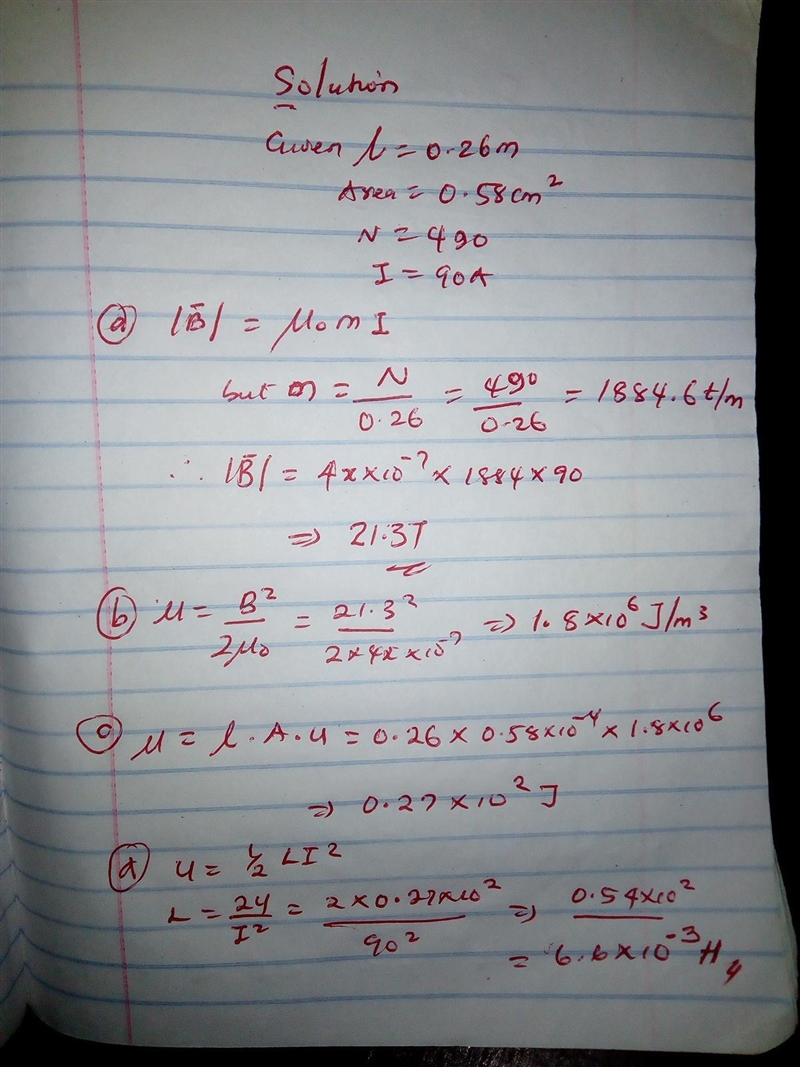 Solution
Given l = 0.26m
Area = 0.58cm²
N = 490
I = 90A
(a) |B̄| = μ₀ n I
but n = N/0.26 = 490/0.26 = 1884.6 t/m
∴ |B̄| = 4π×10⁻⁷ × 1884 × 90
⇒ 21.3T
(b) u = B²/2μ₀ = 21.3²/2×4π×10⁻⁷ ⇒ 1.8×10⁶ J/m³
(c) u = l.A.u = 0.26 × 0.58×10⁻⁴ × 1.8×10⁶
⇒ 0.27 × 10² J
(d) U = ½ LI²
L = 2U/I² = 2×0.27×10²/90² ⇒ 0.54×10²
= 6.6×10⁻³ H